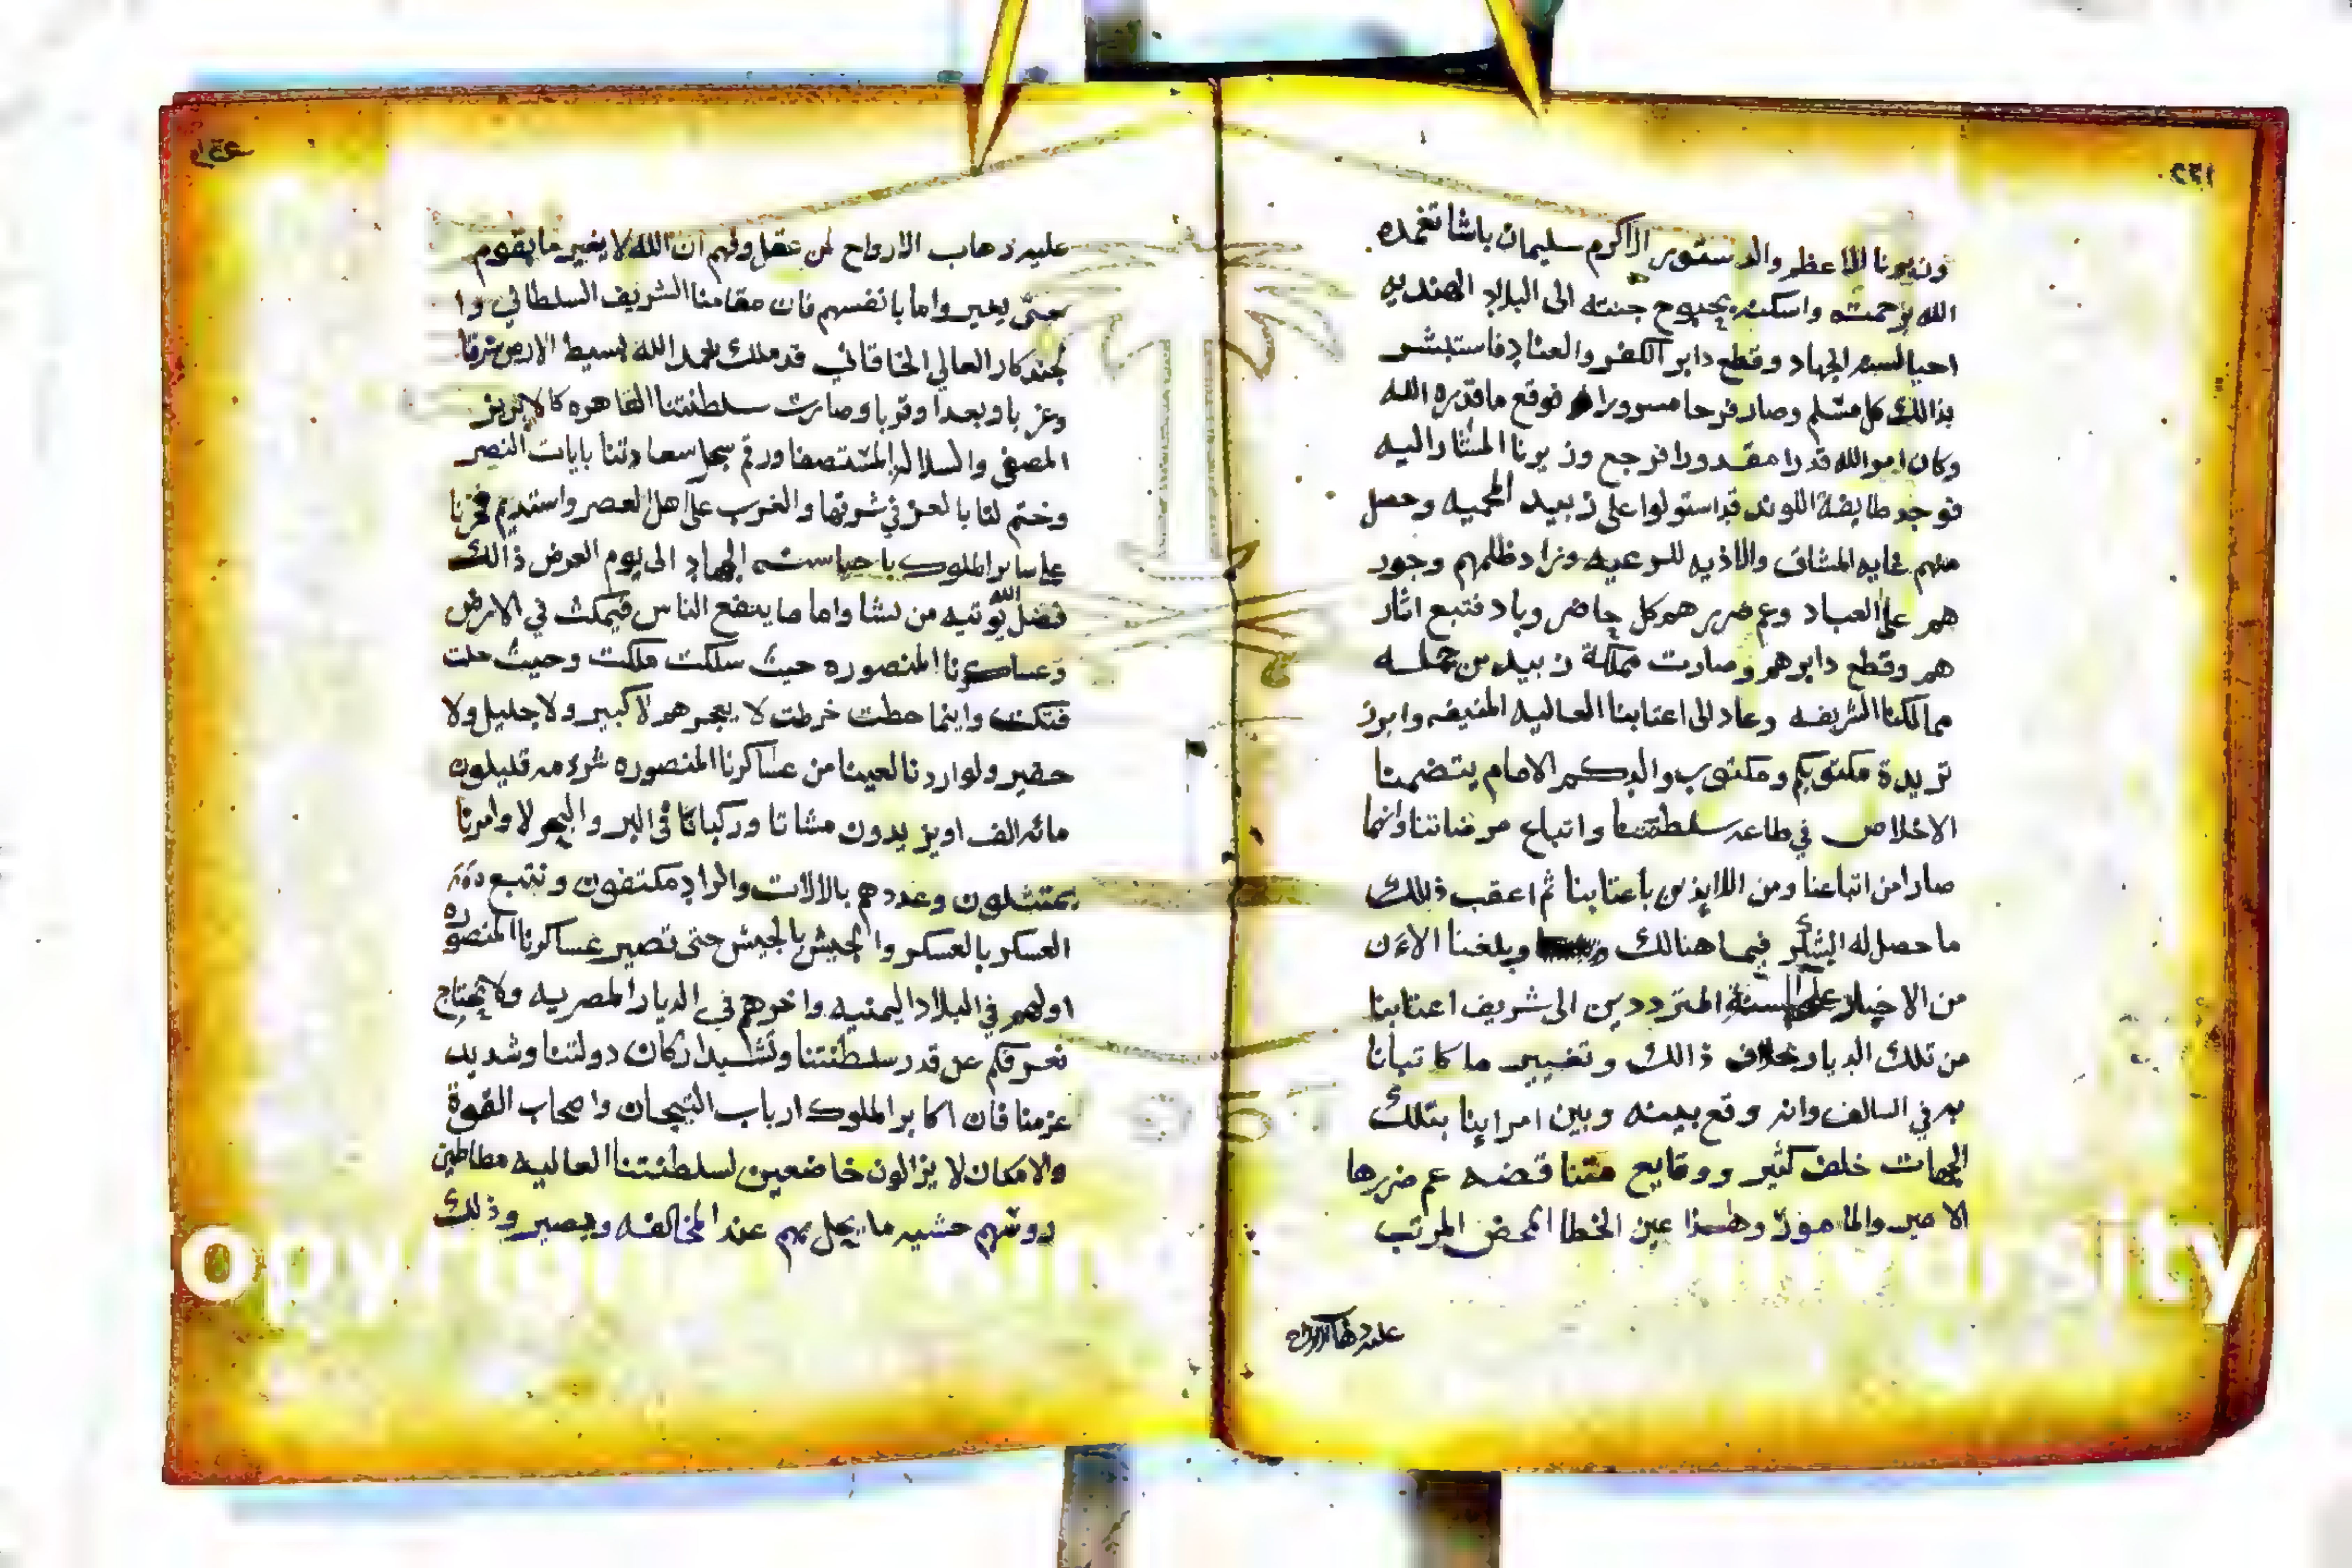 وزيرنا الاعظم والدستور الاكرم سليمان باشا تغمده
الله برحمته واسكنه بحبوح جنته الى البلاد الهنديه
احيا لسنه الجهاد وقطع دابر الكفر والعناد فاستبشر
بذالك كل مسلم وصار فرحا مسرورا فوقع ما قدره الله
وكان امر الله قدرا مقدورا فرجع وزيرنا المشار اليه
فوجد طايفة اللوند قد استولوا على زبيد المحميه وحصل
منهم غايه المشاق والاذيه للرعيه وزاد ظلمهم وجور
هم على العباد وعم ضررهم كل حاضر وباد فتبع اثار
هم وقطع دابرهم وصارت مملكة زبيد من جمله
ممالكنا الشريفه وعاد الى اعتابنا العاليه المنيفه وابرز
تريدة مكتوبكم ومكتوب والدكم الامام يتضمنا
الاخلاص في طاعه سلطنتنا واتباع مرضاتنا وانما
صار من اتباعنا ومن اللايذين باعتابنا ثم اعقب ذلك
ما حصل له الشكر فيما هنالك وبلغنا الاءن
من الاخبار على السنة المترددين الى شريف اعتابنا
من تلك الديار خلاف ذالك وتغيير ما كاتبانا
به في السالف وانه وقع بينه وبين امراينا بتلك
الجهات خلف كثير ووقايع متناقضه عم ضررها
الامير والمامور وهذا عين الخطا المحض المرتب
عليه ذهاب الارواح
عليه ذهاب الارواح لمن عقل وفهم ان الله لا يغير ما بقوم
حتى يغيروا ما بانفسهم فان مقامنا الشريف السلطاني وا
لجندكار العالي الخاقاني قد ملك بحمد الله بسيط الارض شرقا
وغربا وبعدا وقربا وصارت سلطنتنا القاهره كالابريز
المصفى والسلاله ورقم سجل سعادتنا بايات النصر
وختم لنا بالعز في شرقها والغرب على اهل العصر واستديم فخرنا
على ساير الملوك باحيا سنه الجهاد الى يوم العرض ذالك
فضل الله يؤتيه من يشا واما ما ينفع الناس فيمكث في الارض
وعساكرنا المنصوره حيث سلكت ملكت وحيث حلت
فتكت واينما حطت خرطت لا يعجزهم لا كبير ولا جليل ولا
حقير ولو اردنا لعينا من عساكرنا المنصوره شرذمه قليلون
مائه الف او يزيدون مشاتا وركبانا في البر والبحر لاوامرنا
يمتثلون وعددهم بالالات والزاد مكتفون ونتبع
العسكر بالعسكر والجيش بالجيش حتى تصير عساكرنا المنصوره
اولهم في البلاد اليمنيه واخرهم في الديار المصريه ولا يحتاج
نعرفكم عن قدر سلطنتنا وتشييد اركان دولتنا وشديد
عزمنا فان اكابر الملوك ارباب التيجان واصحاب القوة
والامكان لا يزالون خاضعين لسلطنتنا العاليه مطاطين
روسهم خشيه ما يحل بهم عند المخالفه ويصير وذلك